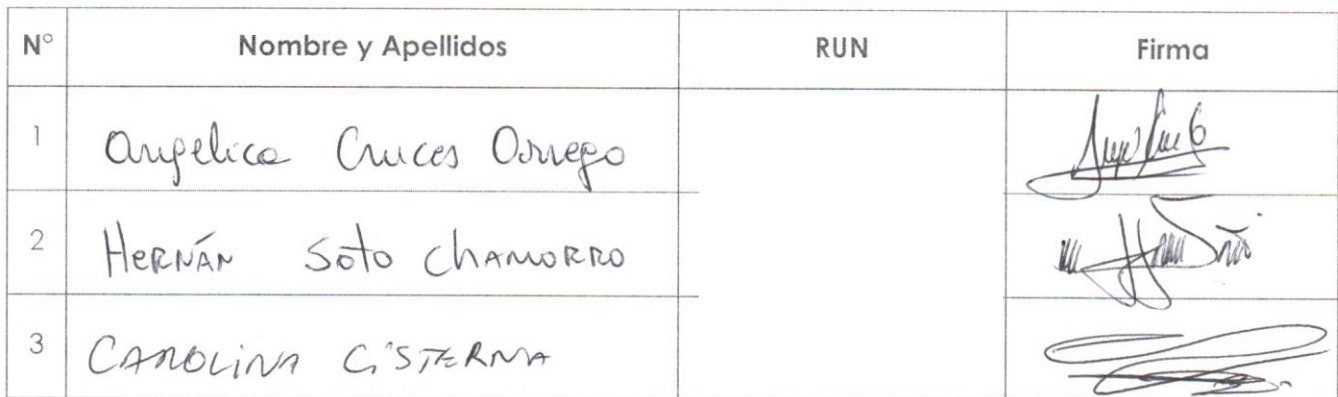 N° Nombre y Apellidos RUN Firma
1 Angelica Cruces Orrego
2 HERNÁN SOTO CHAMORRO
3 CAROLINA CISTERNA